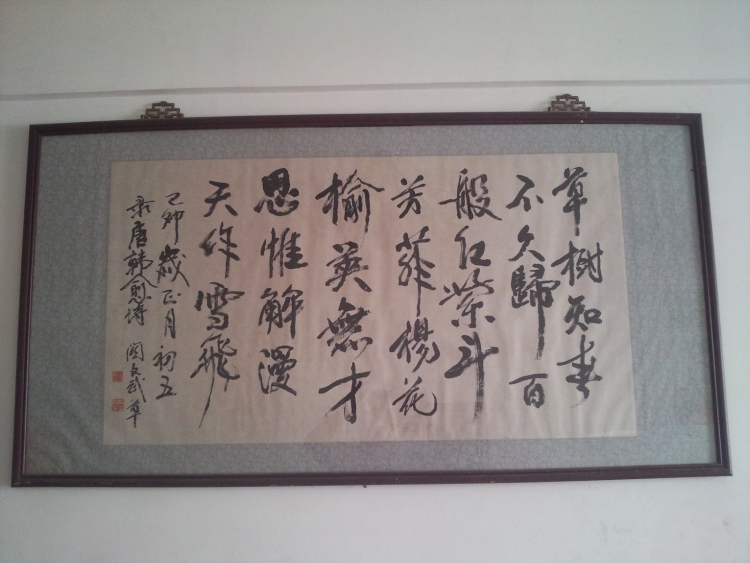 草樹知春
不久歸百
般紅紫斗
芳菲楊花
榆荚無才
思惟解漫
天作雪飛
己卯歲正月初五
录唐韩愈诗 阎文武草